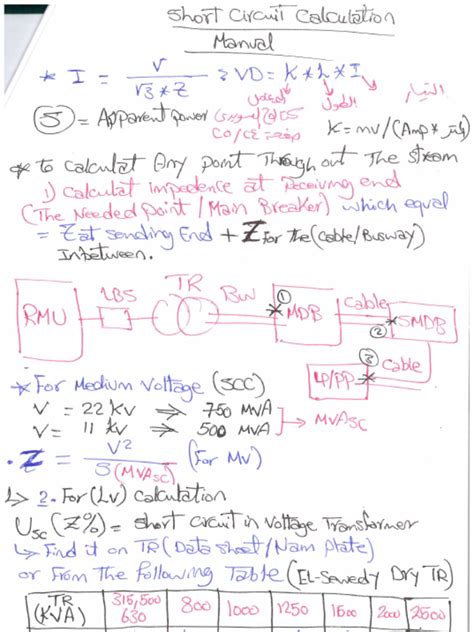 Short Circuit Calculation
Manual
* I = V / √3 * Z & VD = K * L * I
التيار
الطول
(S) = Apparent power
CO/CE
K = mv/(Amp * متر)
* to Calculat Any point Through out The stream
1) Calculat impedence at Receiving end
(The Needed Point / Main Breaker) which equal
= Z at sending End + Z For the (Cable/Busway)
Inbetween.
RMU LBS TR Bus ① MDB Cable ② SMDB
③ Cable
LP/PP
* For Medium Voltage (SCC)
V = 22 KV ⇒ 750 MVA
V = 11 KV ⇒ 500 MVA → MVAsc
• Z = V² / S(MVAsc) (For MV)
↳ 2. For (LV) Calculation
Usc (Z%) = short circuit in Voltage Transformer
↳ Find it on TR (Data sheet / Nam Plate)
or From The Following Table (El-Sewedy Dry TR)
TR (KVA) 315,500 630 800 1000 1250 1600 2000 2500